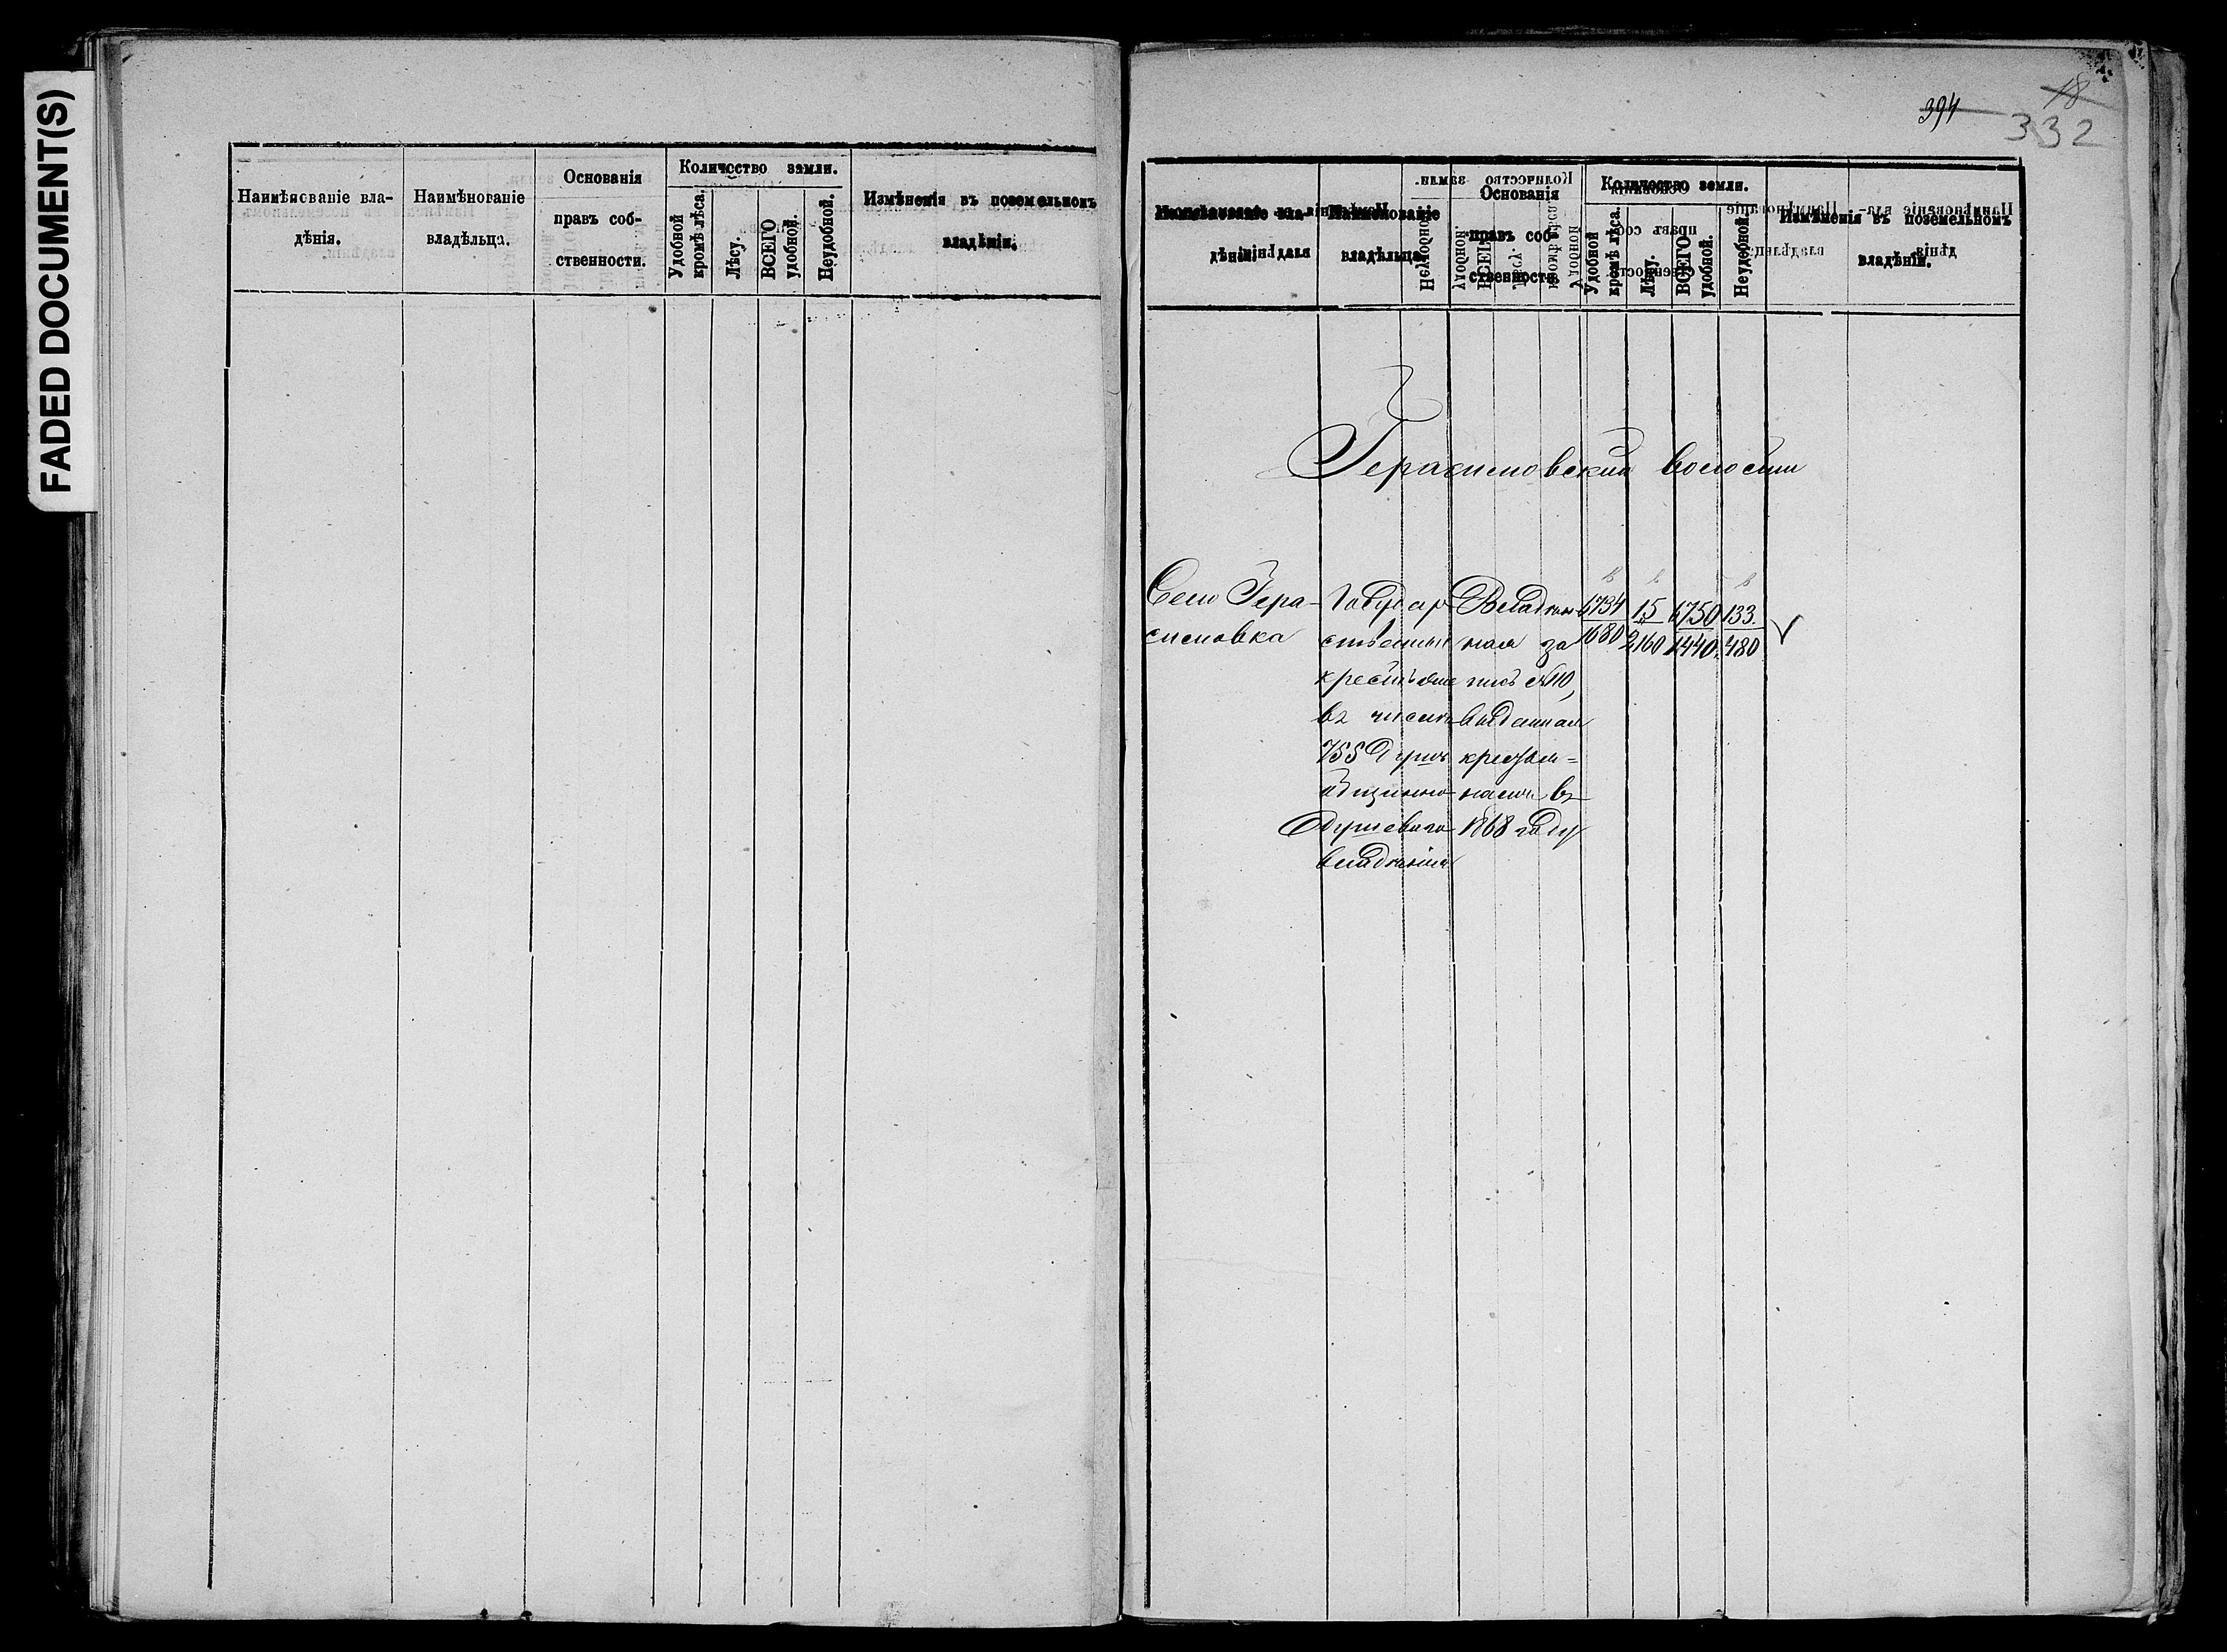 FADED DOCUMENT(S)
Наимѣнованіе вла-
дѣнія.
Наимѣнованіе
владѣльца.
Основанія
правъ соб-
ственности.
Количество земли.
Удобной
кромѣ лѣса.
Лѣсу.
ВСЕГО
удобной.
Неудобной.
Измѣненія въ поземельномъ
владѣніи.
394
18
332
Наимѣнованіе вла-
дѣнія.
Наимѣнованіе
владѣльца.
Основанія
правъ соб-
ственности.
Количество земли.
Удобной
кромѣ лѣса.
Лѣсу.
ВСЕГО
удобной.
Неудобной.
Измѣненія въ поземельномъ
владѣніи.
Герасимовской волости
Село Гера-
симовка
Государ
ственные
крестьяне
въ числѣ
755 душъ
общинно
душеваго
владѣнія
Владѣн
ная за
пись №10,
выданная
крестья-
намъ въ
1868 году
6734
1680
15
2160
6750
1440.
133.
480